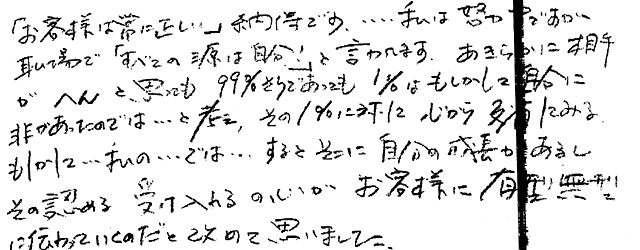 「お客様は常に正しい」納得です、……私は努力ですが
職場で「すべての源は自分!」と言われます。あきらかに相手
がヘんと思っても99%そうであっても1%はもしかして自分に
非があったのでは…と考え、その1%に対して心から にみる。
もしかして…私の…では…するとそこに自分の成長があるし
その認める受け入れるの心がお客様に有型無型
に伝わっていくのだと改めて思いました。